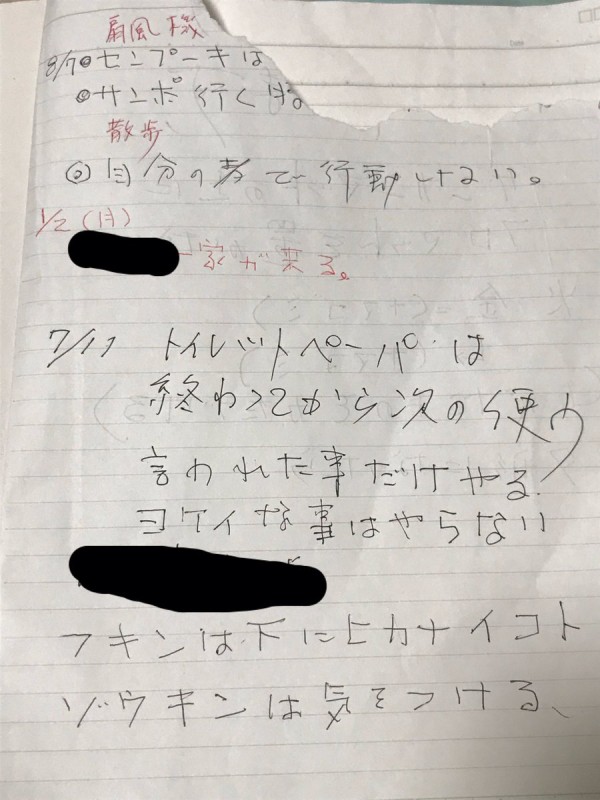 扇風機
8/7◎センプーキは
◎サンポ行くゾ。
散歩
◎自分の考で行動しない。
1/2(月)
一家が来る。
7/11 トイレットペーパーは
終わってから次の使う
言われた事だけやる
ヨケイな事はやらない
フキンは下に上カナイコト
ゾウキンは気をつける、